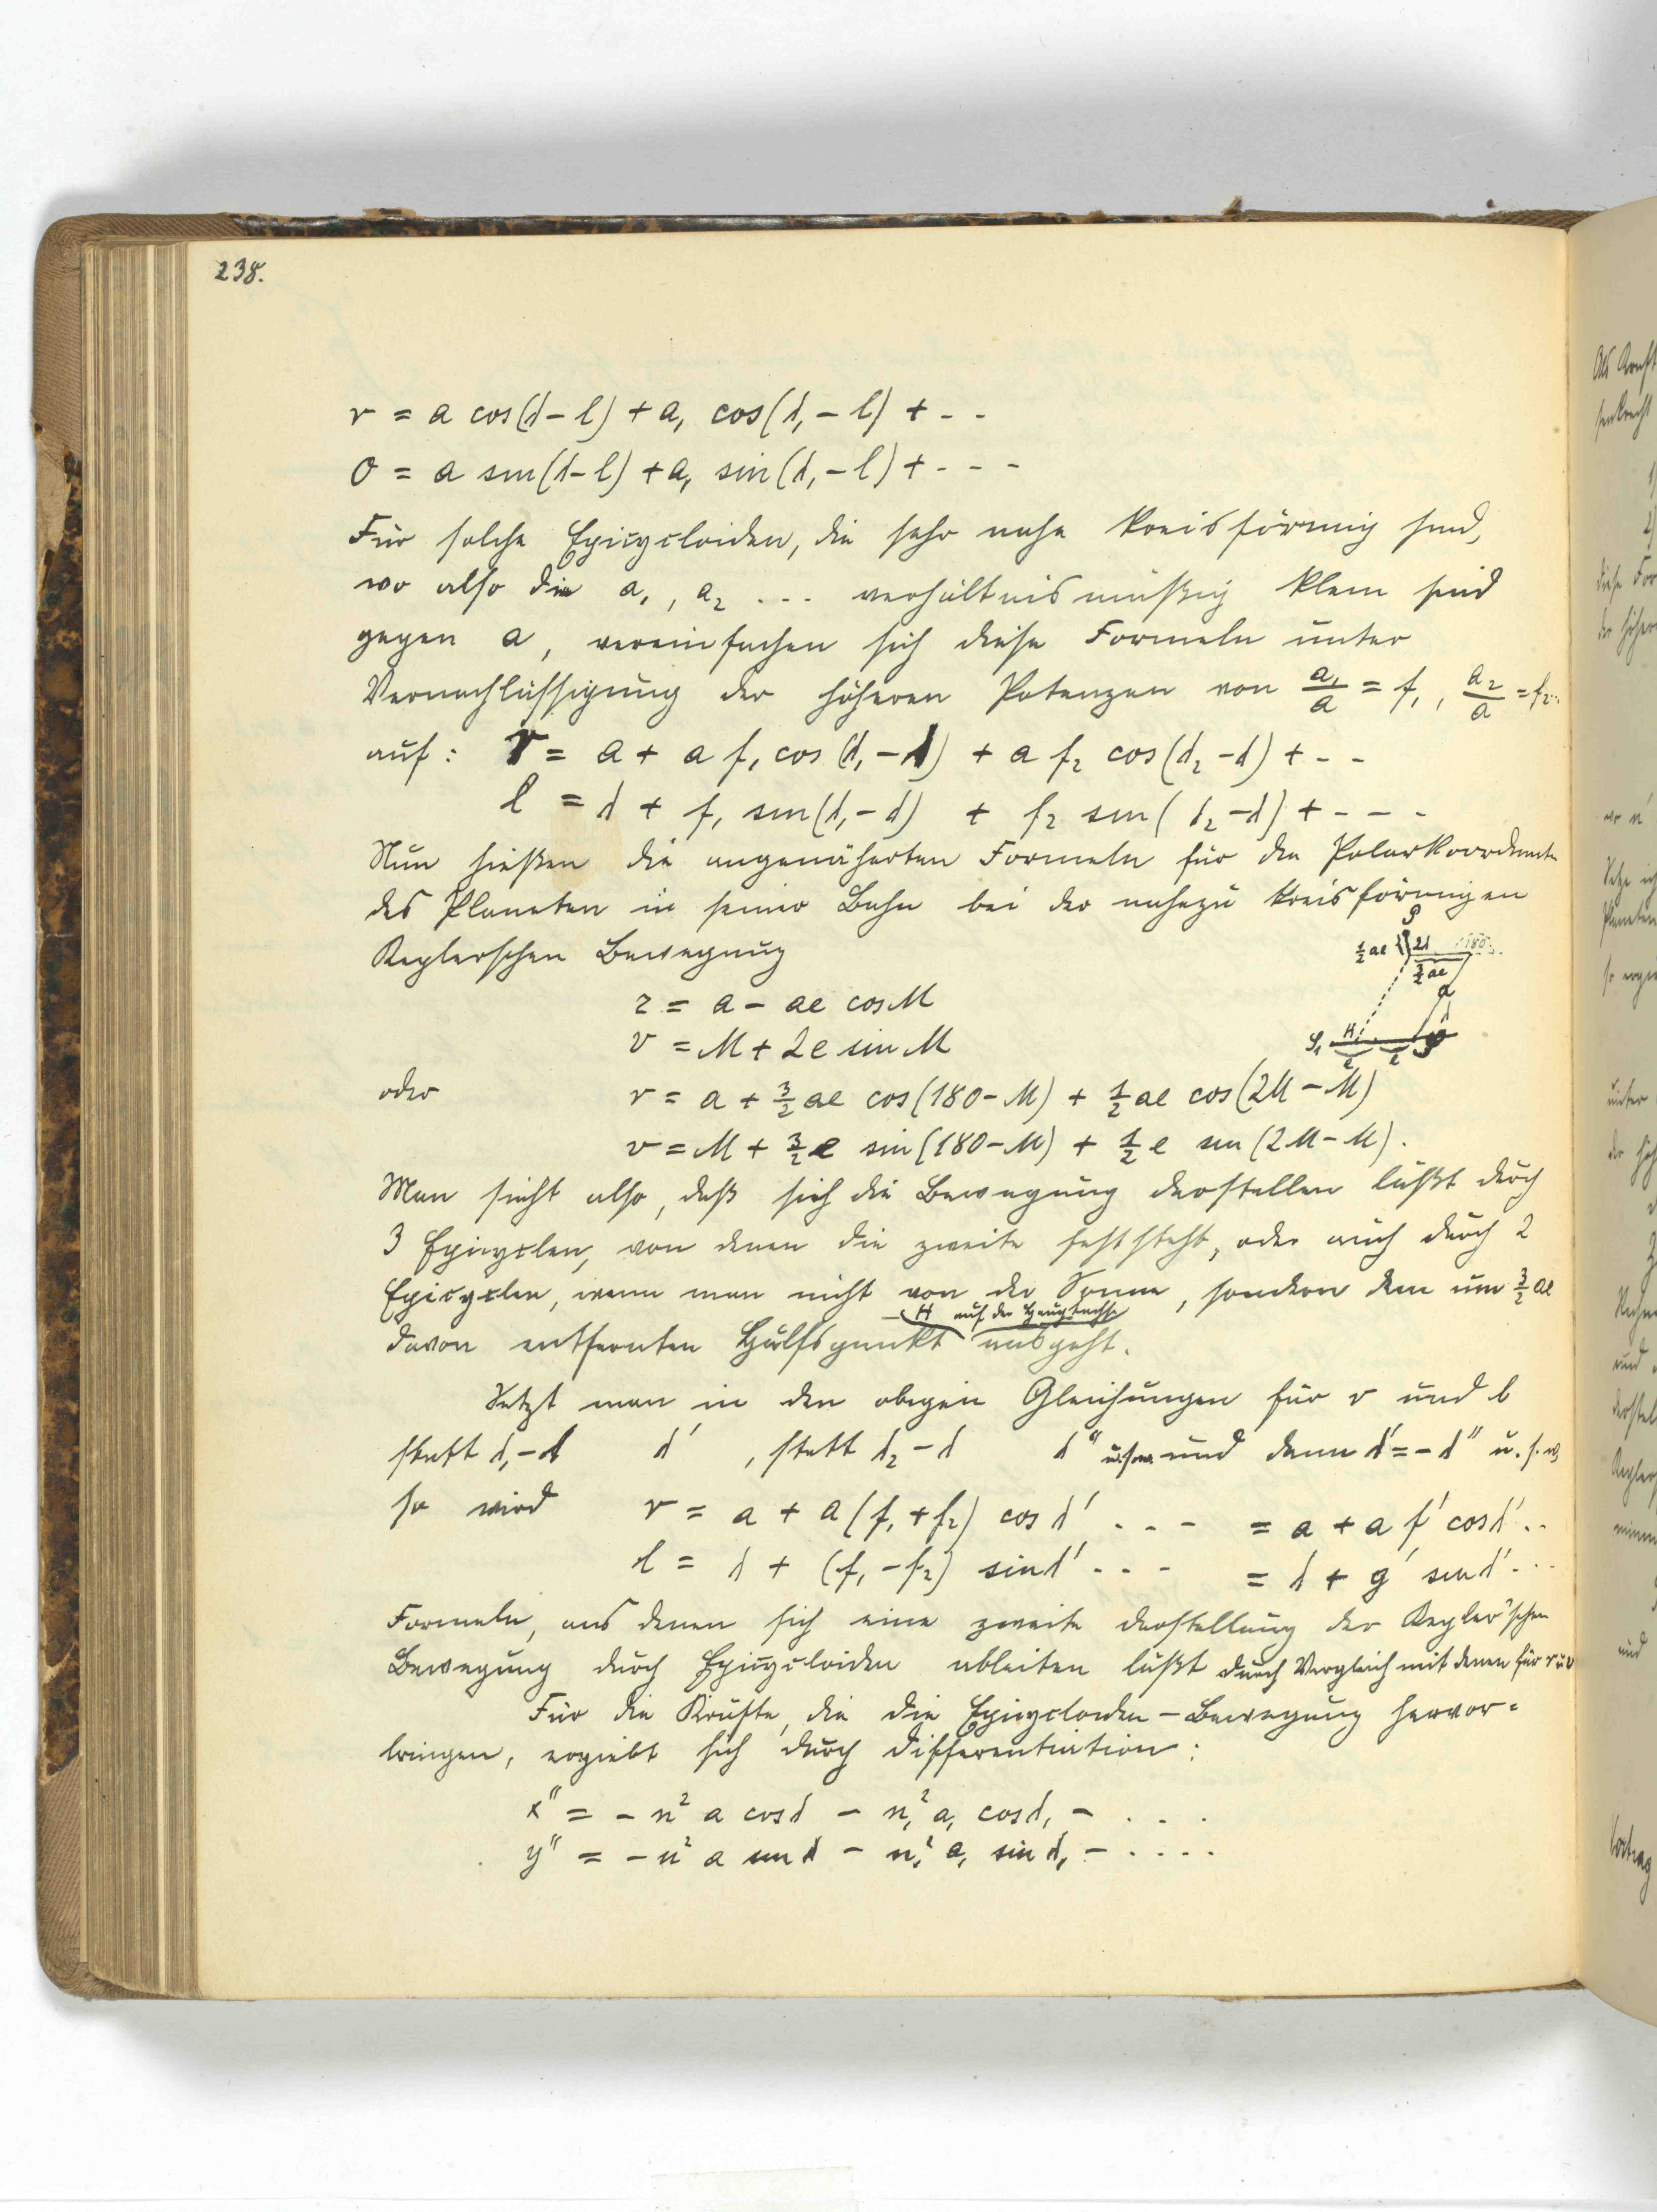 238.
r = a cos(λ-l) + a₁ cos(λ₁-l) + - -
0 = a sin(λ-l) + a₁ sin(λ₁-l) + - - -
Für solche Epicycloiden, die sehr nahe kreisförmig sind,
wo also die a₁, a₂ ... verhältnismäßig klein sind
gegen a, vereinfachen sich diese Formeln unter
Vernachlässigung der höheren Potenzen von a₁/a = f₁, a₂/a = f₂..
auf: r = a + a f₁ cos(λ₁-λ) + a f₂ cos(λ₂-λ) + - -
l = λ + f₁ sin(λ₁-λ) + f₂ sin(λ₂-λ) + - - -
Nun hießen die angenäherten Formeln für die Polarkoordinaten
des Planeten in seiner Bahn bei der nahezu kreisförmigen
Keplerschen Bewegung
P
½ae 2λ 180
3/2 ae
a
S₁ H S
e e
r = a - ae cos M
v = M + 2e sin M
oder r = a + 3/2 ae cos(180-M) + ½ ae cos(2M-M)
v = M + 3/2 e sin(180-M) + ½ e sin(2M-M).
Man sieht also, daß sich die Bewegung darstellen läßt durch
3 Epicyclen, von denen die zweite feststeht, oder auch durch 2
Epicyclen, wenn man nicht von der Sonne, sondern dem um 3/2 ae
H auf der Hauptachse
davon entfernten Hülfspunkt ausgeht.
Setzt man in den obigen Gleichungen für r und l
statt λ₁-λ λ', statt λ₂-λ λ'' u.s.w. und dann λ' = -λ'' u.s.w.
so wird r = a + a(f₁+f₂) cos λ' . . - = a + a f' cos λ' . .
l = λ + (f₁-f₂) sin λ' - - - = λ + g' sin λ' . . .
Formeln, aus denen sich eine zweite Darstellung der Kepler'schen
Bewegung durch Epicycloiden ableiten läßt durch Vergleich mit denen für r u v
Für die Kräfte, die die Epicycloiden-Bewegung hervor=
bringen, ergiebt sich durch Differentiation:
x'' = - n² a cos λ - n₁² a₁ cos λ₁ - . . .
y'' = - n² a sin λ - n₁² a₁ sin λ₁ - . . . .